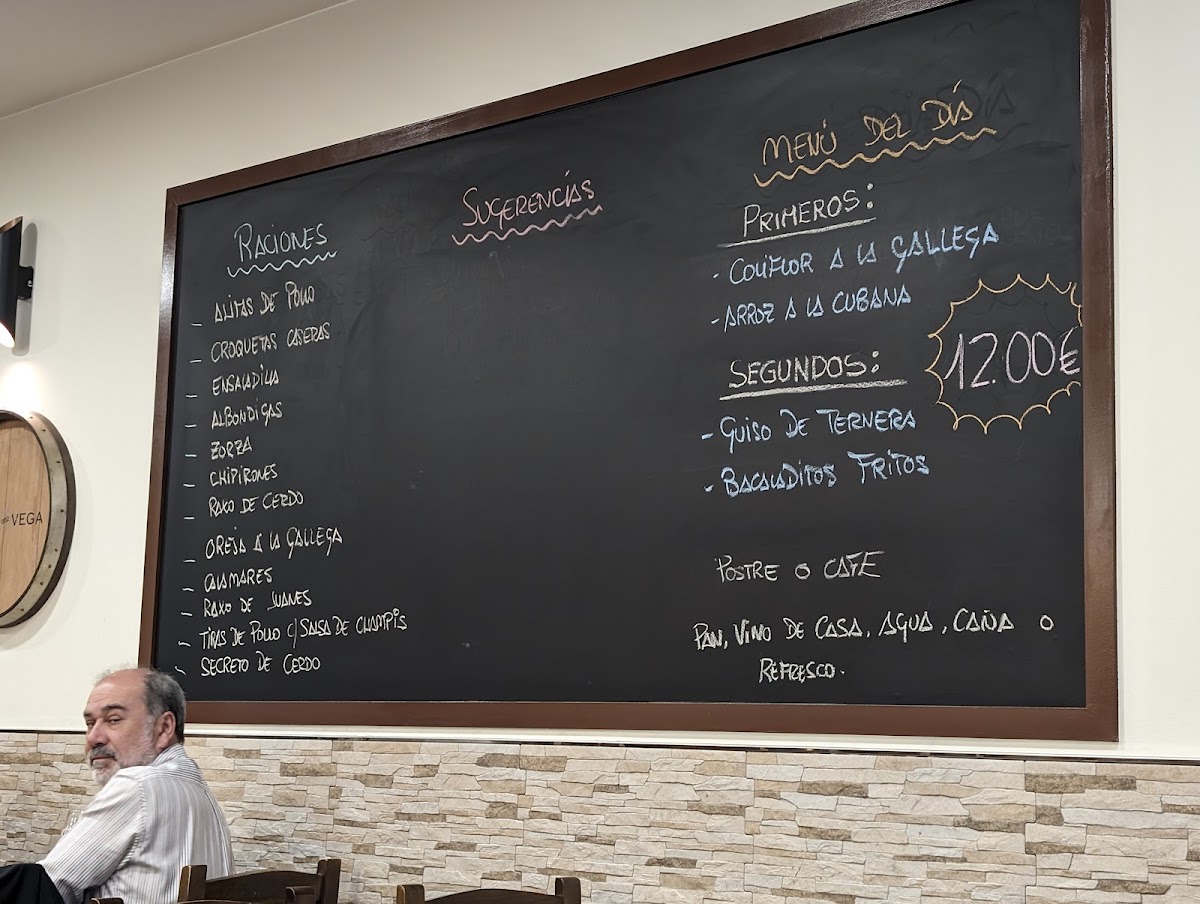 RACIONES
- ALITAS DE POLLO
- CROQUETAS CASERAS
- ENSALADILLA
- ALBONDIGAS
- ZORZA
- CHIPIRONES
- RAXO DE CERDO
- OREJA A LA GALLEGA
- CALAMARES
- RAXO DE JUANES
- TIRAS DE POLLO C/ SALSA DE CHAMPIS
- SECRETO DE CERDO
SUGERENCÍAS
MENÚ DEL DÍA
PRIMEROS:
- COLIFLOR A LA GALLEGA
- ARROZ A LA CUBANA
12.00€
SEGUNDOS:
- GUISO DE TERNERA
- BACALADITOS FRITOS
POSTRE O CAFE
PAN, VINO DE CASA, AGUA, CAÑA O
REFRESCO.
VEGA